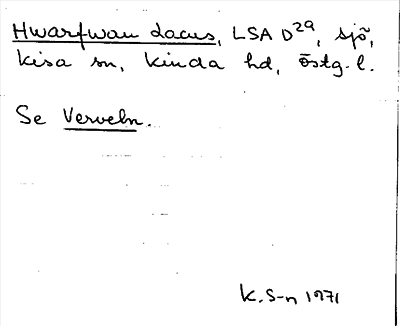 Hwarfwan Lacus, LSA D29, sjö,
Kisa sn, Kinda hd, Östg. l.
Se Verveln.
K. S-n 1971